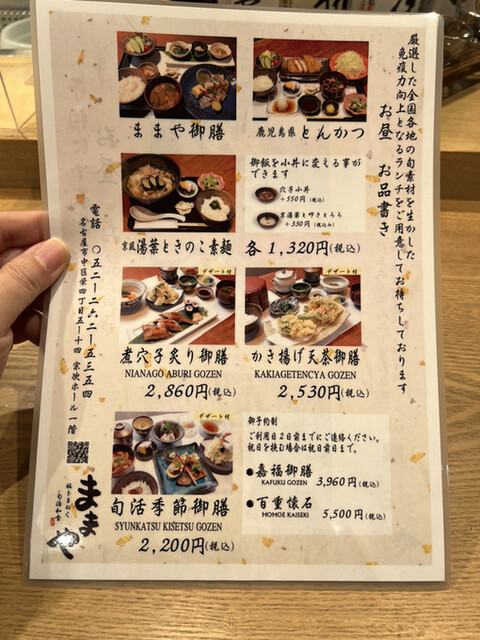 厳選した全国各地の旬素材を生かした
免疫力向上となるランチをご用意してお待ちしております
お昼 お品書き
ままや御膳
鹿児島県とんかつ
京風湯葉ときのこ素麺
御飯を小丼に変える事ができます
穴子小丼
+550円(税込)
京湯葉と叩きとろろ
+330円(税込み)
各1,320円(税込)
デザート付
煮穴子炙り御膳
NIANAGO ABURI GOZEN
2,860円(税込)
デザート付
かき揚げ天茶御膳
KAKIAGETENCYA GOZEN
2,530円(税込)
デザート付
旬活季節御膳
SYUNKATSU KISETSU GOZEN
2,200円(税込)
御予約制
ご利用日2日前までにご連絡ください。
祝日を挟む場合は祝日前日まで。
●嘉福御膳
KAFUKU GOZEN
3,960円(税込)
●百重懐石
MOMOE KAISEKI
5,500円(税込)
電話 〇五二ー二六二ー五三五四
名古屋市中区栄四丁目五ー十四 宗次ホール一階
福をまねく
旬活和食
ままや